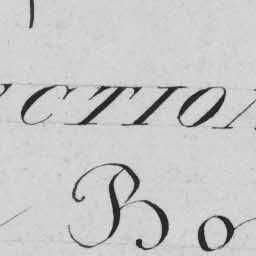 CTION
Bo